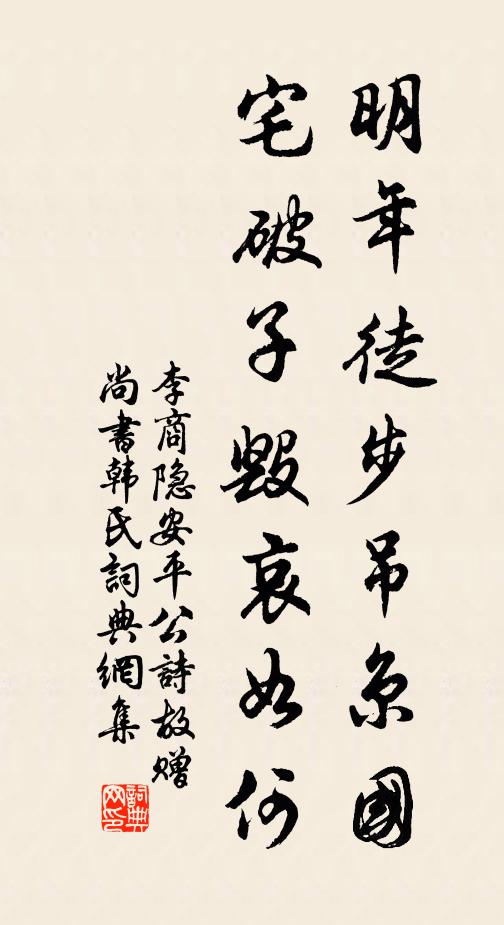 明年徒步吊京國
宅破子毀哀如何
李商隐安平公詩故赠
尚書韩氏詞典網集
詞典网印